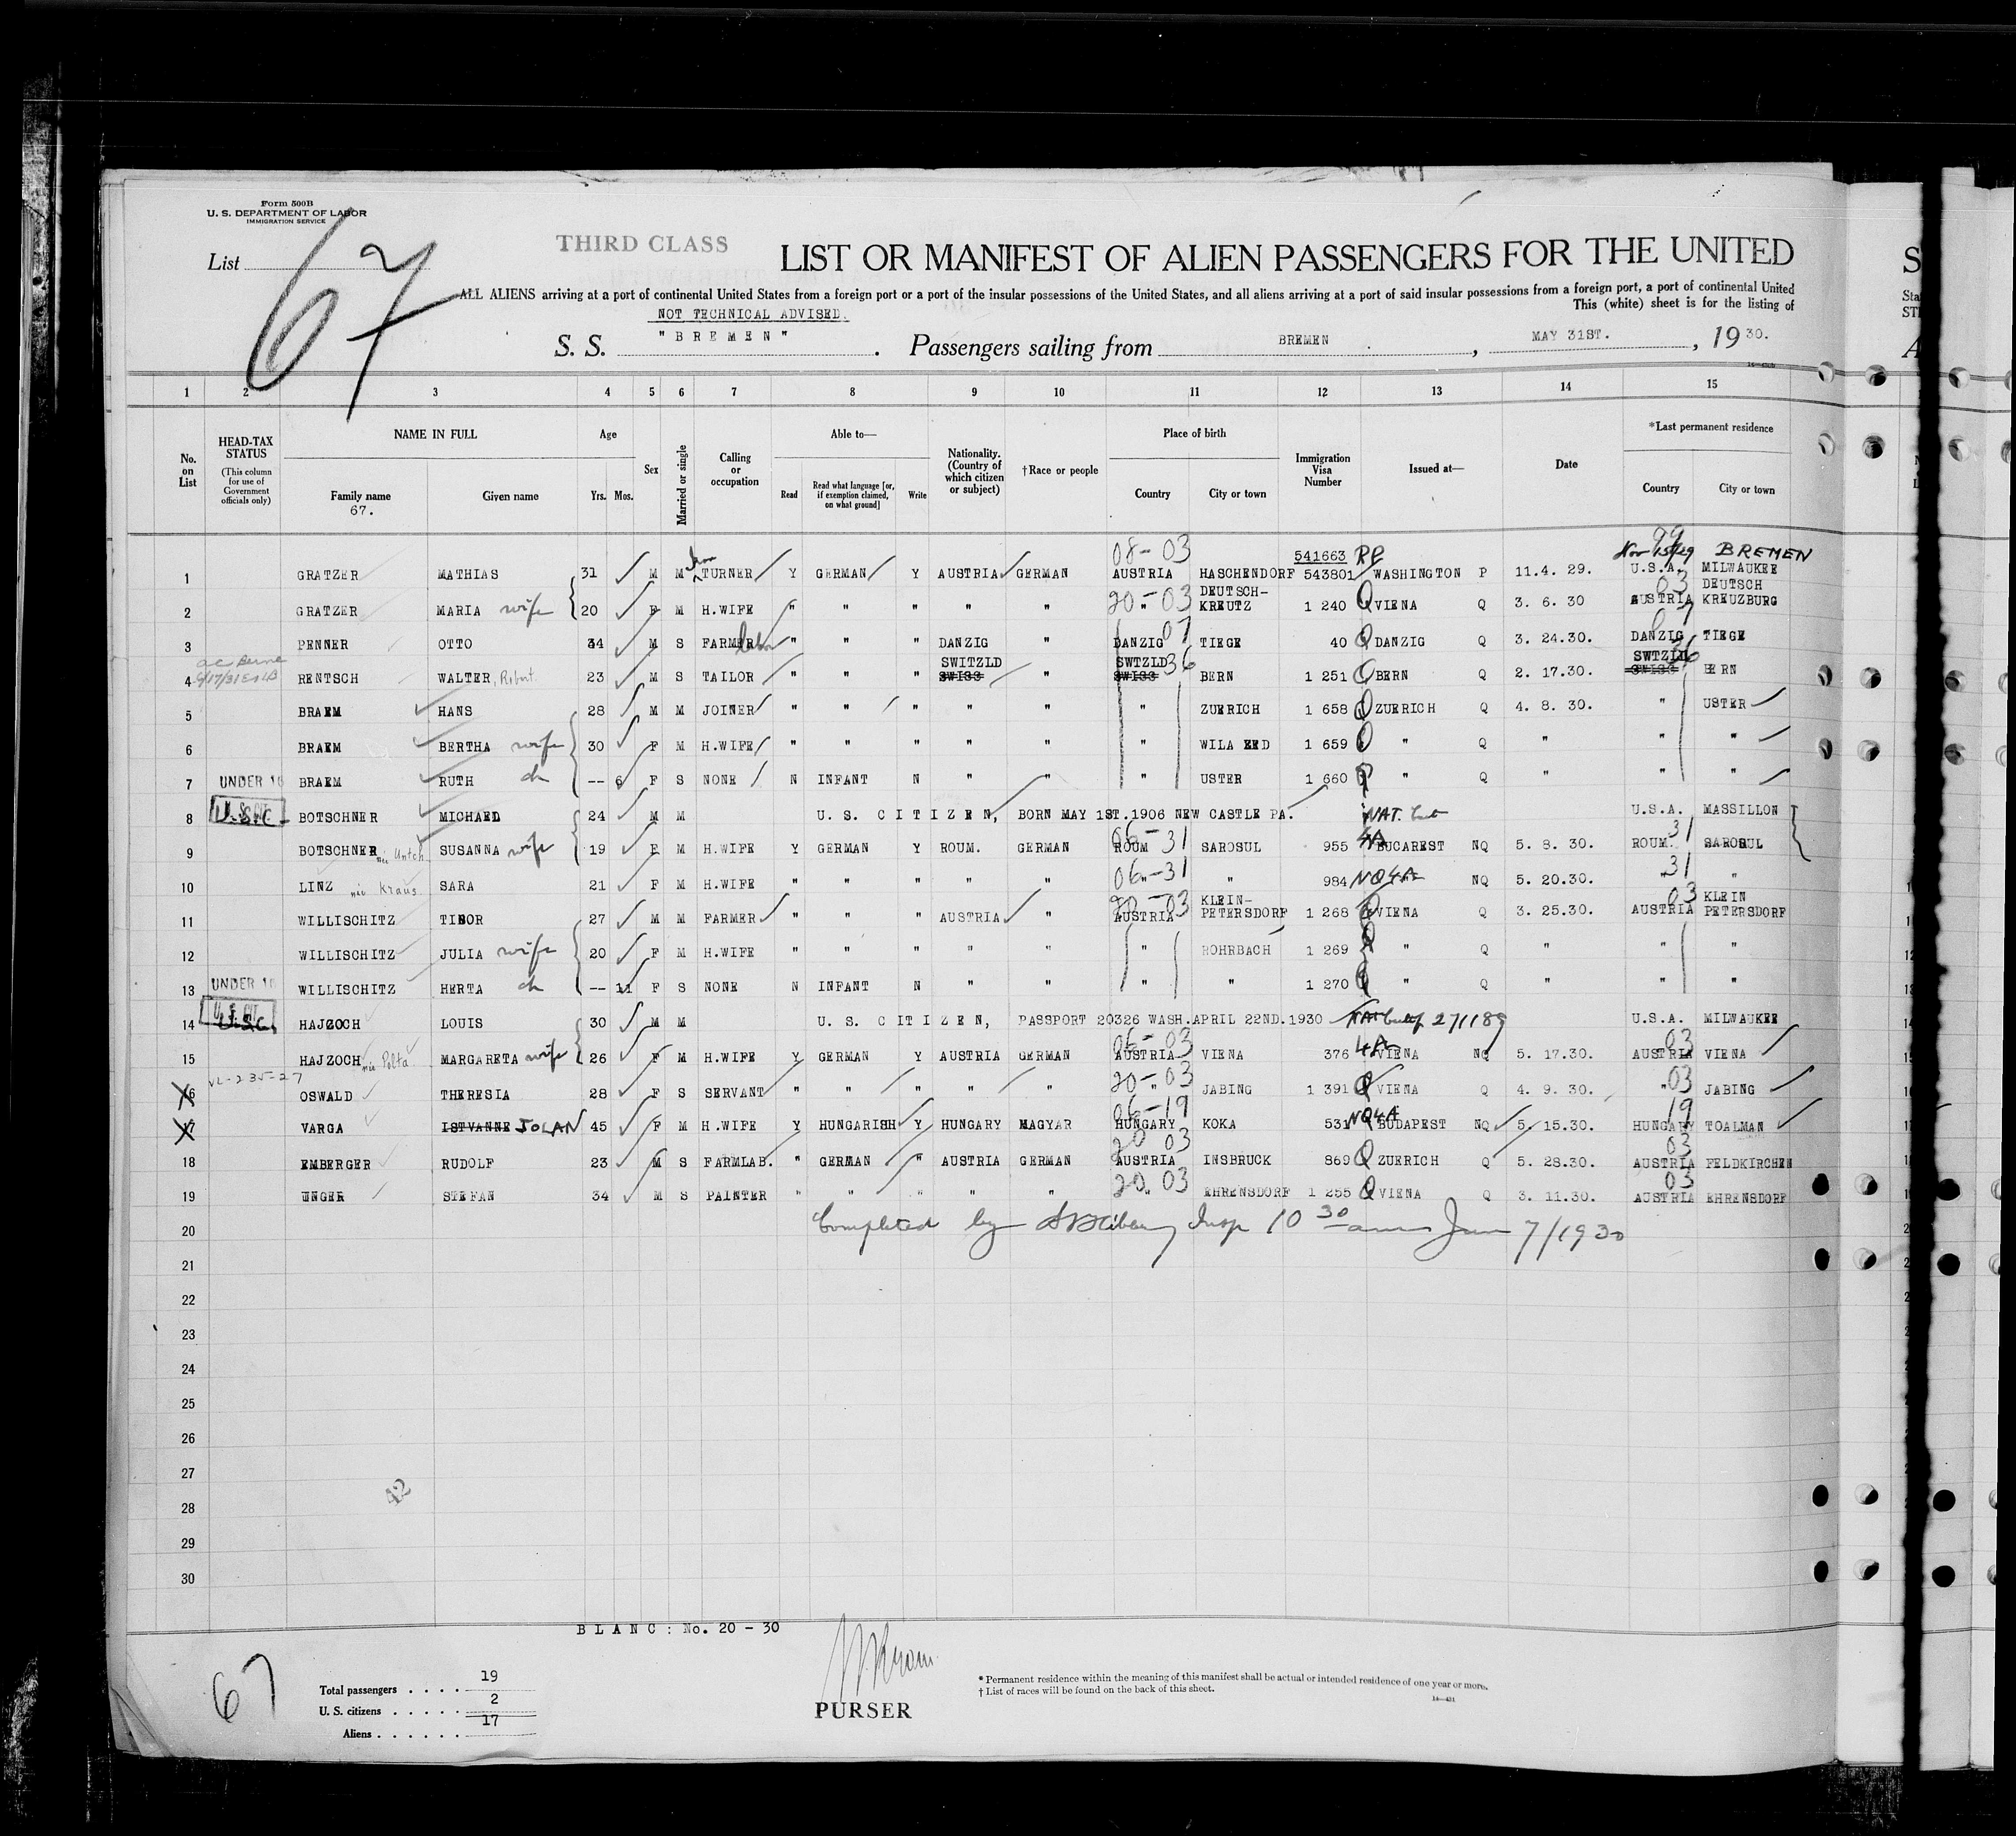 Form 500B
U. S. DEPARTMENT OF LABOR
IMMIGRATION SERVICE
List 67
THIRD CLASS
LIST OR MANIFEST OF ALIEN PASSENGERS FOR THE UNITED
ALL ALIENS arriving at a port of continental United States from a foreign port or a port of the insular possessions of the United States, and all aliens arriving at a port of said insular possessions from a foreign port, a port of continental United
This (white) sheet is for the listing of
NOT TECHNICAL ADVISED.
S. S. "BREMEN". Passengers sailing from BREMEN, MAY 31ST., 1930.
1 2 3 4 5 6 7 8 9 10 11 12 13 14 15
No. on List
HEAD-TAX STATUS
(This column for use of Government officials only)
NAME IN FULL
Family name
67.
Given name
Age
Yrs. Mos.
Sex
Married or single
Calling or occupation
Able to—
Read
Read what language [or, if exemption claimed, on what ground]
Write
Nationality. (Country of which citizen or subject)
†Race or people
Place of birth
Country
City or town
Immigration Visa Number
Issued at—
Date
*Last permanent residence
Country
City or town
08-03 541663 99 BREMEN
1 GRATZER MATHIAS 31 M M TURNER Y GERMAN Y AUSTRIA GERMAN AUSTRIA HASCHENDORF 543801 WASHINGTON P 11.4. 29. U.S.A. MILWAUKEE
2 GRATZER MARIA wife 20 F M H.WIFE " " " " " 20-03 " DEUTSCH-KREUTZ 1 240 Q VIENA Q 3. 6. 30 03 AUSTRIA DEUTSCH KREUZBURG
3 PENNER OTTO 34 M S FARMER labor " " " DANZIG " DANZIG 07 TIEGE 40 Q DANZIG Q 3. 24.30. DANZIG TIEGE
4 RENTSCH WALTER, Robert 23 M S TAILOR " " " SWITZLD SWISS " SWTZLD SWISS 36 BERN 1 251 Q BERN Q 2. 17.30. SWTZLD SWISS 36 BERN
5 BRAEM HANS 28 M M JOINER " " " " " " ZUERICH 1 658 Q ZUERICH Q 4. 8. 30. " USTER
6 BRAEM BERTHA wife 30 F M H.WIFE " " " " " " WILA 1 659 Q " Q " " "
7 UNDER 16 BRAEM RUTH ch -- 6 F S NONE N INFANT N " " " USTER 1 660 Q " Q " " "
8 U.S.C. BOTSCHNER MICHAEL 24 M M U. S. CITIZEN, BORN MAY 1ST.1906 NEW CASTLE PA. NAT. U.S.A. MASSILLON
9 BOTSCHNER née Untch SUSANNA wife 19 F M H.WIFE Y GERMAN Y ROUM. GERMAN 06-31 ROUM SAROSUL 955 4A BUCAREST NQ 5. 8. 30. 31 ROUM. SAROSUL
10 LINZ née Kraus SARA 21 F M H.WIFE " " " " " 06-31 " " 984 NQ4A NQ 5. 20.30. 31 " "
11 WILLISCHITZ TIBOR 27 M M FARMER " " " AUSTRIA " 20-03 AUSTRIA KLEIN-PETERSDORF 1 268 Q VIENA Q 3. 25.30. 03 AUSTRIA KLEIN PETERSDORF
12 WILLISCHITZ JULIA wife 20 F M H.WIFE " " " " " " ROHRBACH 1 269 Q " Q " " "
13 UNDER 16 WILLISCHITZ HERTA ch -- 11 F S NONE N INFANT N " " " " 1 270 Q " Q " " "
14 U.S.C. HAJZOCH LOUIS 30 M M U. S. CITIZEN, PASSPORT 20326 WASH.APRIL 22ND.1930 U.S.A. MILWAUKEE
15 HAJZOCH née Polta MARGARETA wife 26 F M H.WIFE Y GERMAN Y AUSTRIA GERMAN 06-03 AUSTRIA VIENA 376 4A VIENA NQ 5. 17.30. 03 AUSTRIA VIENA
16 OSWALD THERESIA 28 F S SERVANT " " " " " 20-03 " JABING 1 391 Q VIENA Q 4. 9. 30. " 03 JABING
17 VARGA ISTVANNE JOLAN 45 F M H.WIFE Y HUNGARISH Y HUNGARY MAGYAR 06-19 HUNGARY KOKA 531 NQ4A BUDAPEST NQ 5. 15.30. 19 HUNGARY TOALMAN
18 EMBERGER RUDOLF 23 M S FARMLAB. " GERMAN " AUSTRIA GERMAN 20 03 AUSTRIA INSBRUCK 869 Q ZUERICH Q 5. 28.30. 03 AUSTRIA FELDKIRCHEN
19 UNGER STEFAN 34 M S PAINTER " " " " " 20 03 " EHRENSDORF 1 255 Q VIENA Q 3. 11.30. 03 AUSTRIA EHRENSDORF
20 Completed by Insp 10 30 am June 7/1930
21
22
23
24
25
26
27
28
29
30
42
BLANC: No. 20 - 30
67
Total passengers .... 19
U. S. citizens ..... 2
Aliens ...... 17
PURSER
* Permanent residence within the meaning of this manifest shall be actual or intended residence of one year or more.
† List of races will be found on the back of this sheet.
14—431